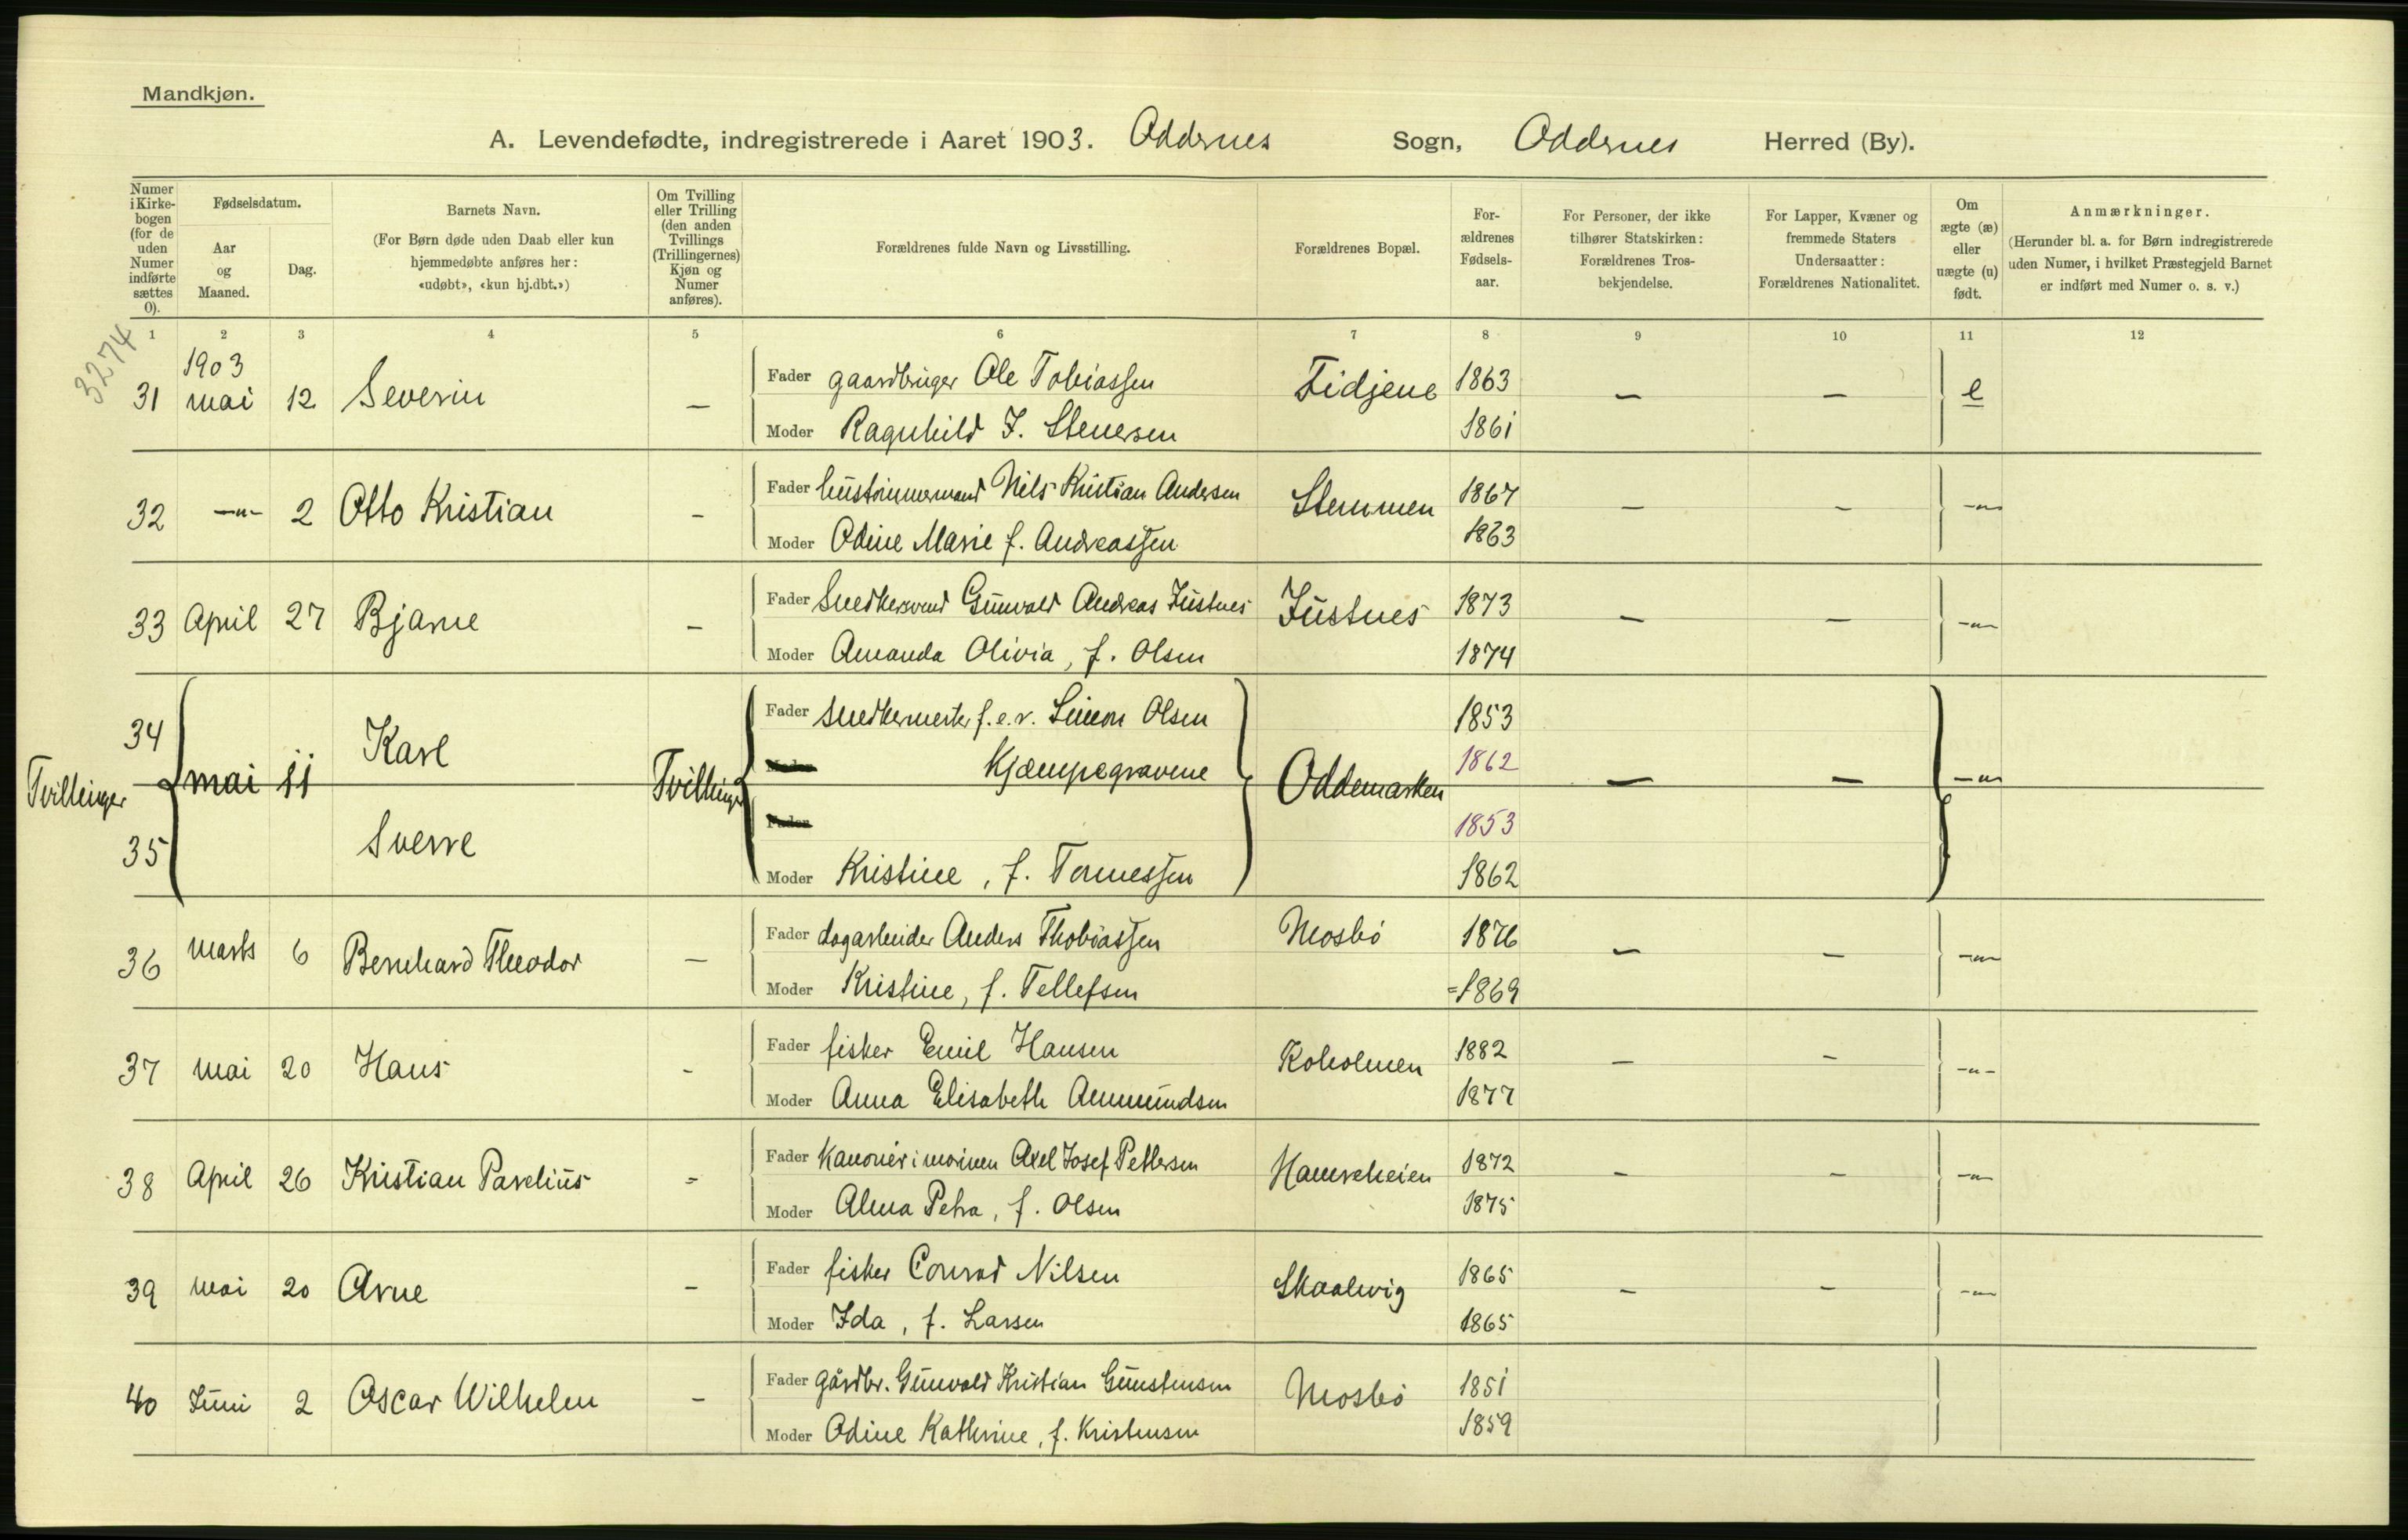 Mandkjøn.
A. Levendefødte, indregistrerede i Aaret 1903. Oddernes Sogn, Oddernes Herred (By).
Numer i Kirke-bogen (for de uden Numer indførte sættes 0).
Fødselsdatum.
Aar og Maaned.
Dag.
Barnets Navn.
(For Børn døde uden Daab eller kun hjemmedøbte anføres her: «udøbt», «kun hj.dbt.»)
Om Tvilling eller Trilling (den anden Tvillings (Trillingernes) Kjøn og Numer anføres).
Forældrenes fulde Navn og Livsstilling.
Forældrenes Bopæl.
For-ældrenes Fødsels-aar.
For Personer, der ikke tilhører Statskirken: Forældrenes Tros-bekjendelse.
For Lapper, Kvæner og fremmede Staters Undersaatter: Forældrenes Nationalitet.
Om ægte (æ) eller uægte (u) født.
Anmærkninger.
(Herunder bl. a. for Børn indregistrerede uden Numer, i hvilket Præstegjeld Barnet er indført med Numer o. s. v.)
1 2 3 4 5 6 7 8 9 10 11 12
3274
1903
31 mai 12 Severin — Fader gaardbruger Ole Tobiassen Fidjene 1863 — — e
Moder Ragnhild J. Stenersen 1861
32 —"— 2 Otto Kristian — Fader hustømmermand Nils Kristian Andersen Stemmen 1867 — — —"—
Moder Odine Marie f. Andreassen 1863
33 April 27 Bjarne — Fader Snedkersvend Gunvald Andreas Justnes Justnes 1873 — — —"—
Moder Amanda Olivia, f. Olsen 1874
34 Karl Fader snedkermester f.e.r. Simon Olsen 1853
Moder Kjæmpegravene 1862
Tvillinger mai 11 Tvillinger Oddemarken — — —"—
Fader 1853
35 Sverre Moder Kristine, f. Tornessen 1862
36 marts 6 Bernhard Theodor — Fader dagarbeider Anders Thobiassen Mosbö 1876 — — —"—
Moder Kristine, f. Tellefsen 1869
37 mai 20 Hans - Fader fisker Emil Hansen Koholmen 1882 — — —"—
Moder Anna Elisabeth Ammundsen 1877
38 April 26 Kristian Parelius - Fader Kanonér i marinen Axel Josef Pettersen Hamreheien 1872 — — —"—
Moder Alma Petra, f. Olsen 1875
39 mai 20 Arne — Fader fisker Conrad Nilsen Skaalevig 1865 — — —"—
Moder Ida, f. Larsen 1865
40 Juni 2 Oscar Wilhelm — Fader gårdbr. Gunvald Kristian Gunstensen Mosbö 1851
Moder Odine Kathrine, f. Kristensen 1859